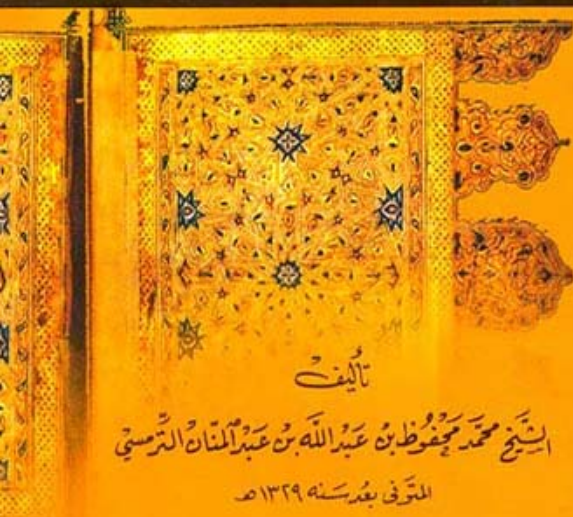 تأليف
الشيخ محمد محفوظ بن عبد الله بن عبد المنان الترمسي
المتوفى بعد سنه ١٣٢٩ هـ